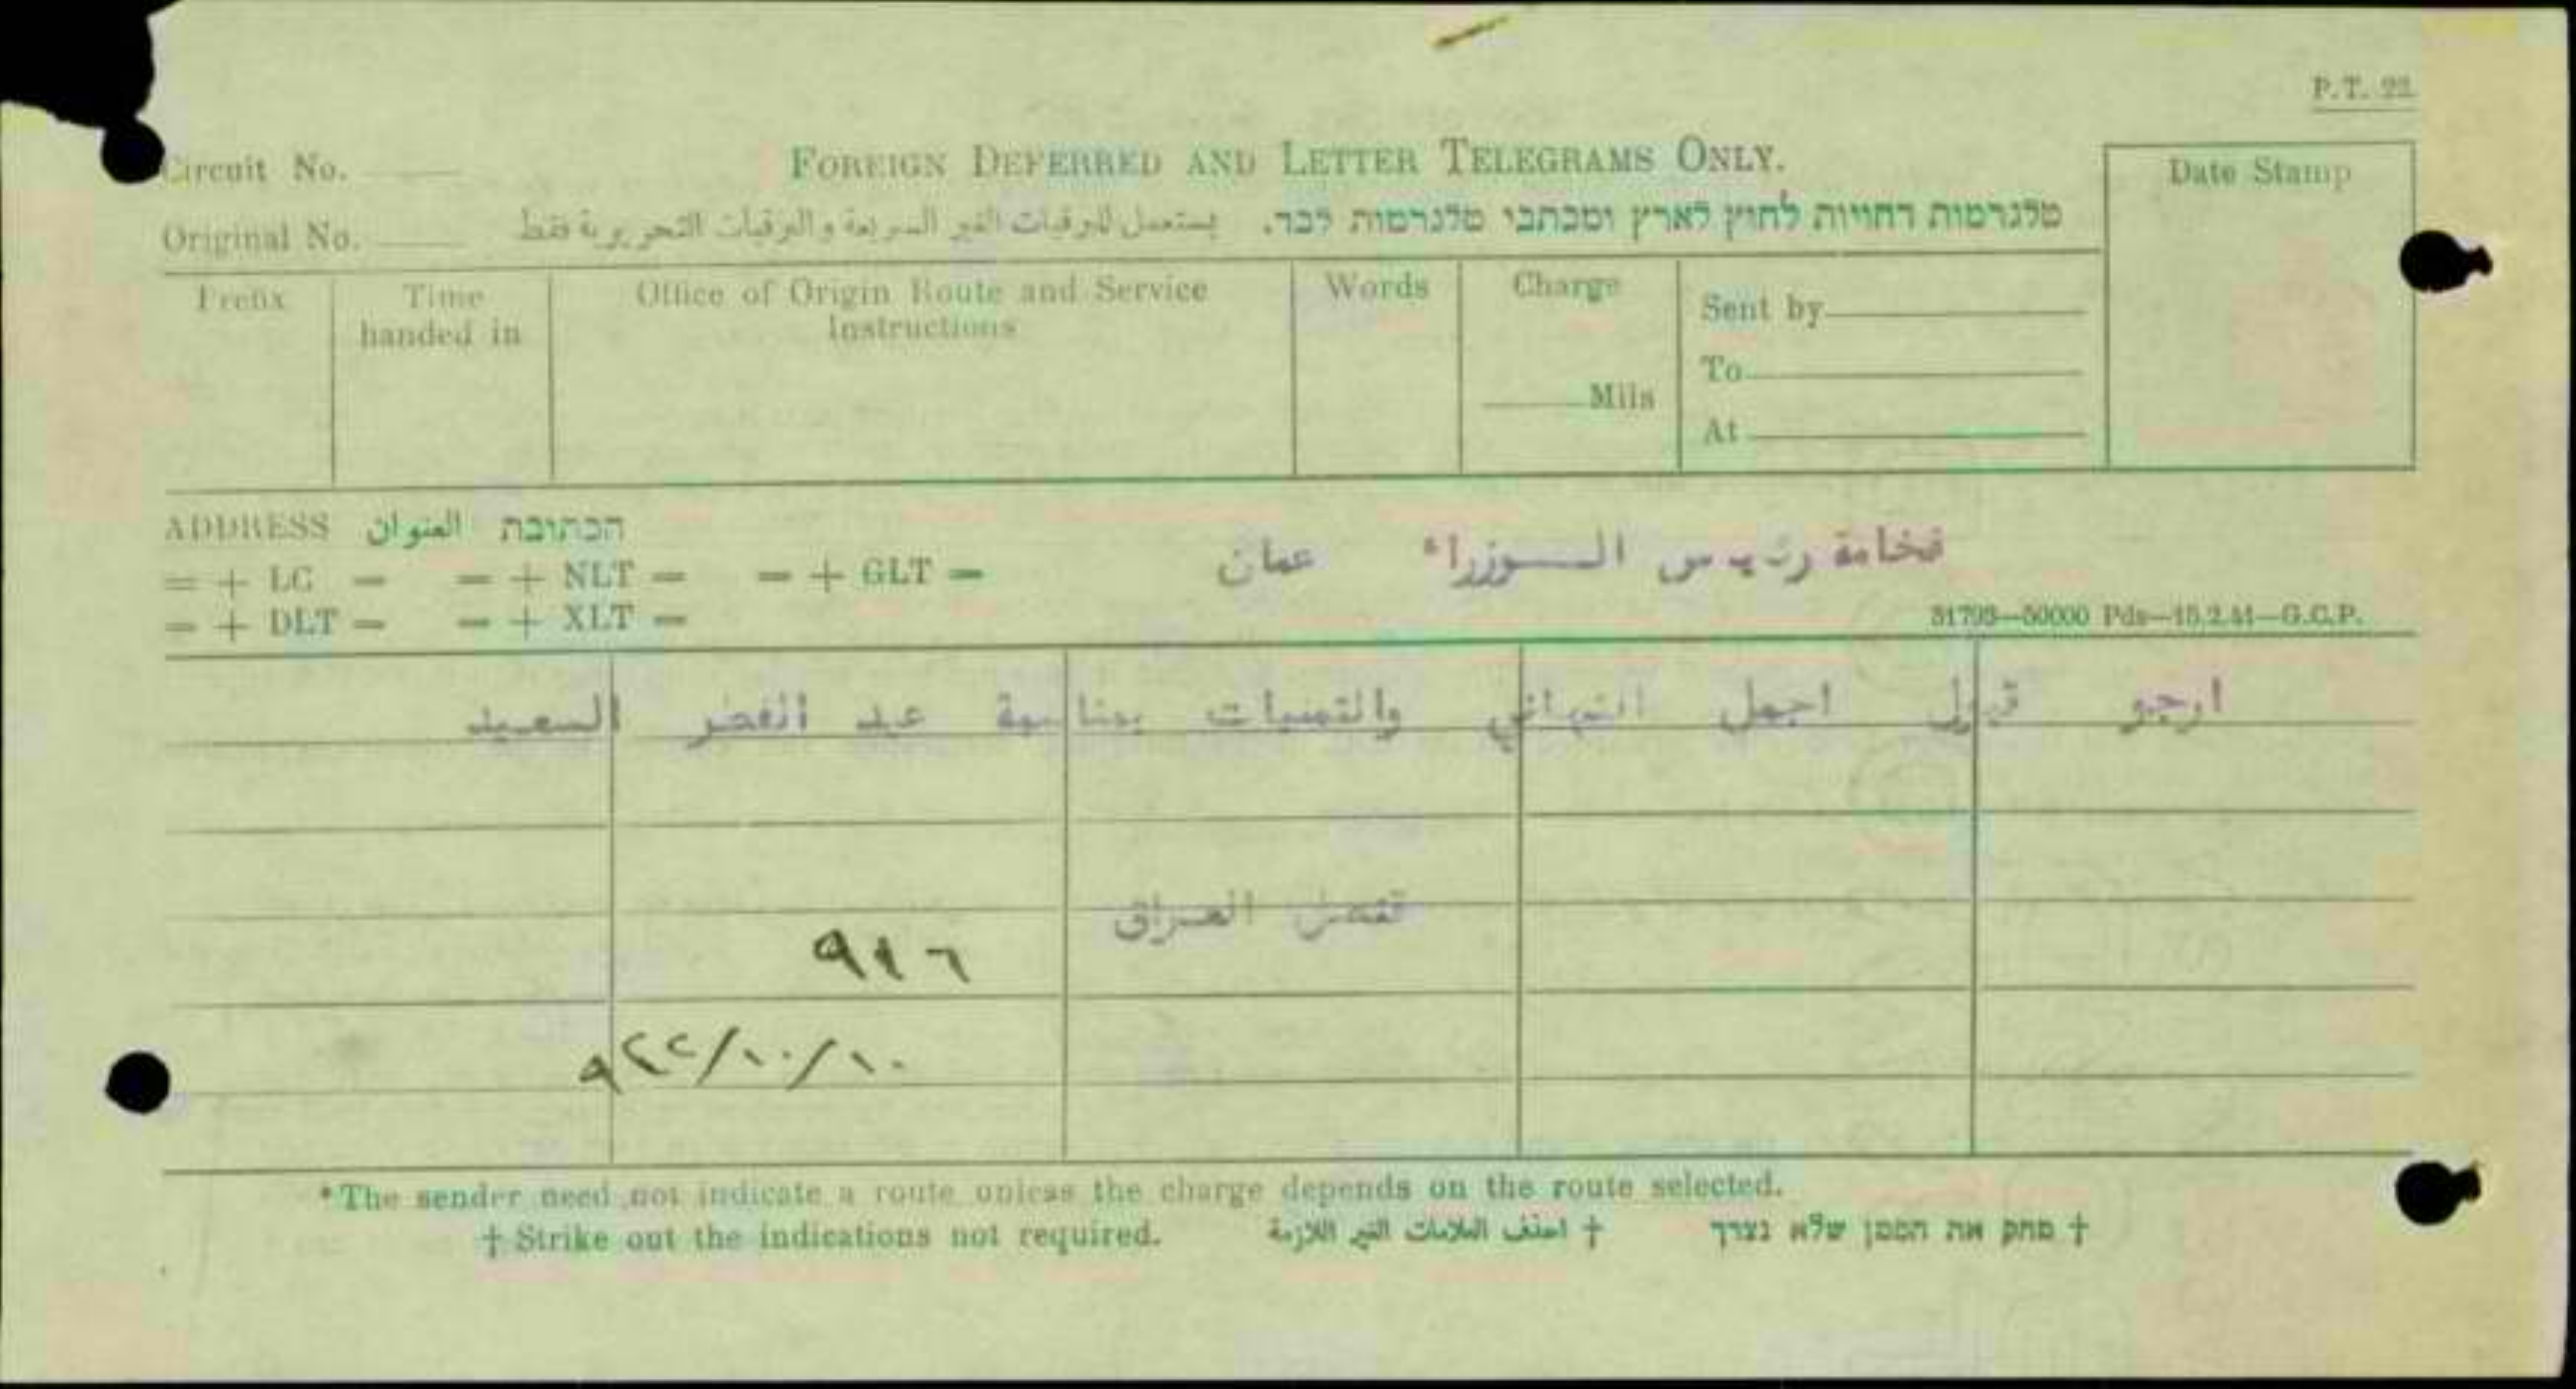 P.T. 22.
Circuit No.
FOREIGN DEFERRED AND LETTER TELEGRAMS ONLY.
Date Stamp
Original No.
يستعمل للبرقيات الغير السريعة والبرقيات التحريرية فقط
טלגרמות דחויות לחוץ לארץ ומכתבי טלגרמות לבד.
Prefix
Time handed in
Office of Origin Route and Service Instructions
Words
Charge
Mils
Sent by
To
At
ADDRESS العنوان הכתובת
= + LC = = + NLT = = + GLT =
= + DLT = = + XLT =
فخامة رئيس الوزراء عمان
31793—50000 Pds—15.2.41—G.C.P.
ارجو قبول اجمل التهاني والتمنيات بمناسبة عيد الفطر السعيد
قنصل العراق
٩١٦
١٠/١٠/٩٤٢
*The sender need not indicate a route unless the charge depends on the route selected.
† Strike out the indications not required. † احذف العلامات الغير اللازمة † מחק את הסמן שלא נצרך